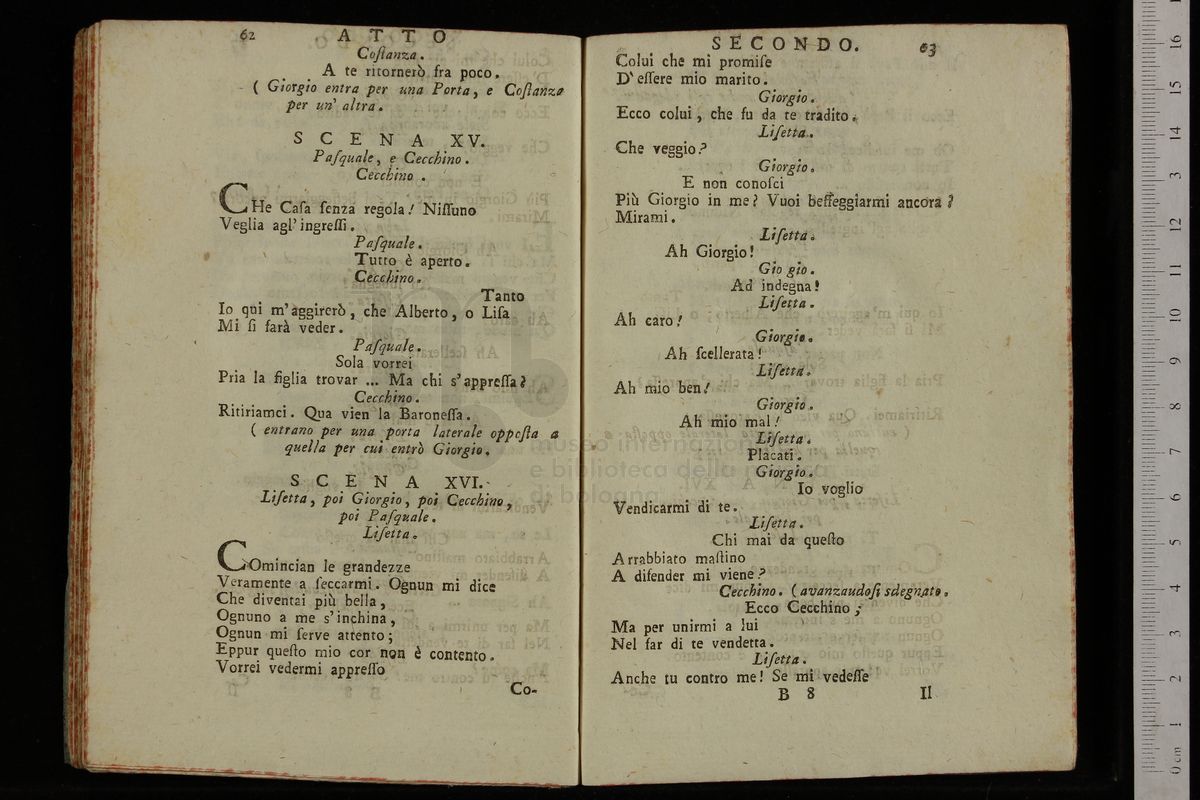 62 ATTO
Coſtanza.
A te ritornerò fra poco.
( Giorgio entra per una Porta, e Coſtanza
per un' altra.
SCENA XV.
Paſquale, e Cecchino.
Cecchino.
CHe Caſa ſenza regola! Niſſuno
Veglia agl' ingreſſi.
Paſquale.
Tutto è aperto.
Cecchino.
Tanto
Io qui m'aggirerò, che Alberto, o Liſa
Mi ſi farà veder.
Paſquale.
Sola vorrei
Pria la figlia trovar ... Ma chi s'appreſſa?
Cecchino.
Ritiriamci. Qua vien la Baroneſſa.
( entrano per una porta laterale oppoſta a
quella per cui entrò Giorgio.
SCENA XVI.
Liſetta, poi Giorgio, poi Cecchino,
poi Paſquale.
Liſetta.
COmincian le grandezze
Veramente a ſeccarmi. Ognun mi dice
Che diventai più bella,
Ognuno a me s'inchina,
Ognun mi ſerve attento;
Eppur queſto mio cor non è contento.
Vorrei vedermi appreſſo
Co-
SECONDO. 63
Colui che mi promiſe
D'eſſere mio marito.
Giorgio.
Ecco colui, che fu da te tradito.
Liſetta.
Che veggio?
Giorgio.
E non conoſci
Più Giorgio in me? Vuoi beffeggiarmi ancora?
Mirami.
Liſetta.
Ah Giorgio!
Gio gio.
Ad indegna!
Liſetta.
Ah caro!
Giorgio.
Ah ſcellerata!
Liſetta.
Ah mio ben!
Giorgio.
Ah mio mal!
Liſetta.
Placati.
Giorgio.
Io voglio
Vendicarmi di te.
Liſetta.
Chi mai da queſto
Arrabbiato maſtino
A difender mi viene?
Cecchino. ( avanzaudoſi sdegnato.
Ecco Cecchino;
Ma per unirmi a lui
Nel far di te vendetta.
Liſetta.
Anche tu contro me! Se mi vedeſſe
B 8 Il
museo internazionale
e biblioteca della musica
di bologna
0 cm 1 2 3 4 5 6 7 8 9 10 11 12 13 14 15 16